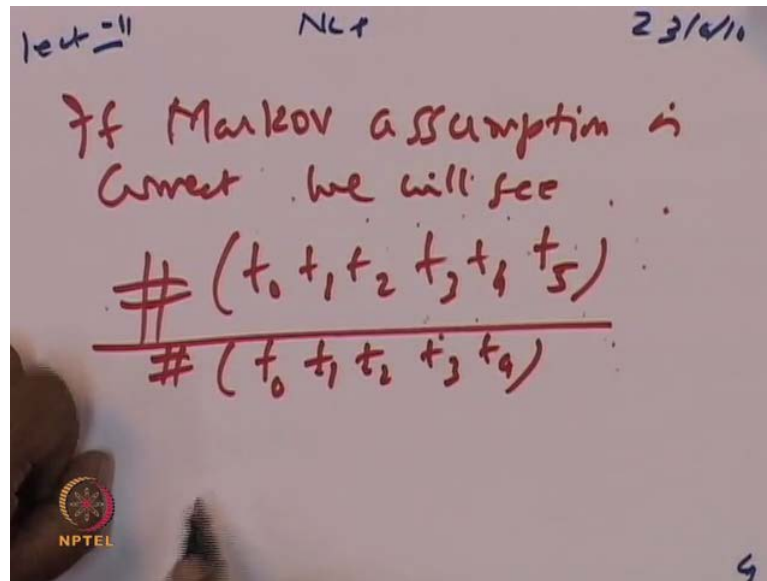 lect-11 NLP 23/8/10
If Markov assumption is
correct we will see
# (t₀ t₁ t₂ t₃ t₄ t₅)
# (t₀ t₁ t₂ t₃ t₄)
NPTEL